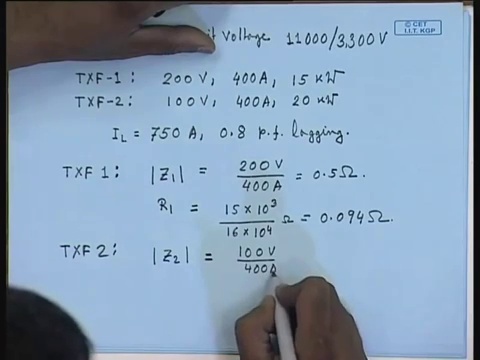 it Voltage 11000/3,300V
© CET
I.I.T. KGP
TXF-1: 200V, 400A, 15 kW
TXF-2: 100V, 400A, 20 kW
I_L = 750 A, 0.8 p.f. lagging.
TXF 1: |Z₁| = 200V / 400A = 0.5Ω.
R₁ = 15 × 10³ / 16 × 10⁴ Ω = 0.094Ω.
TXF 2: |Z₂| = 100V / 400A